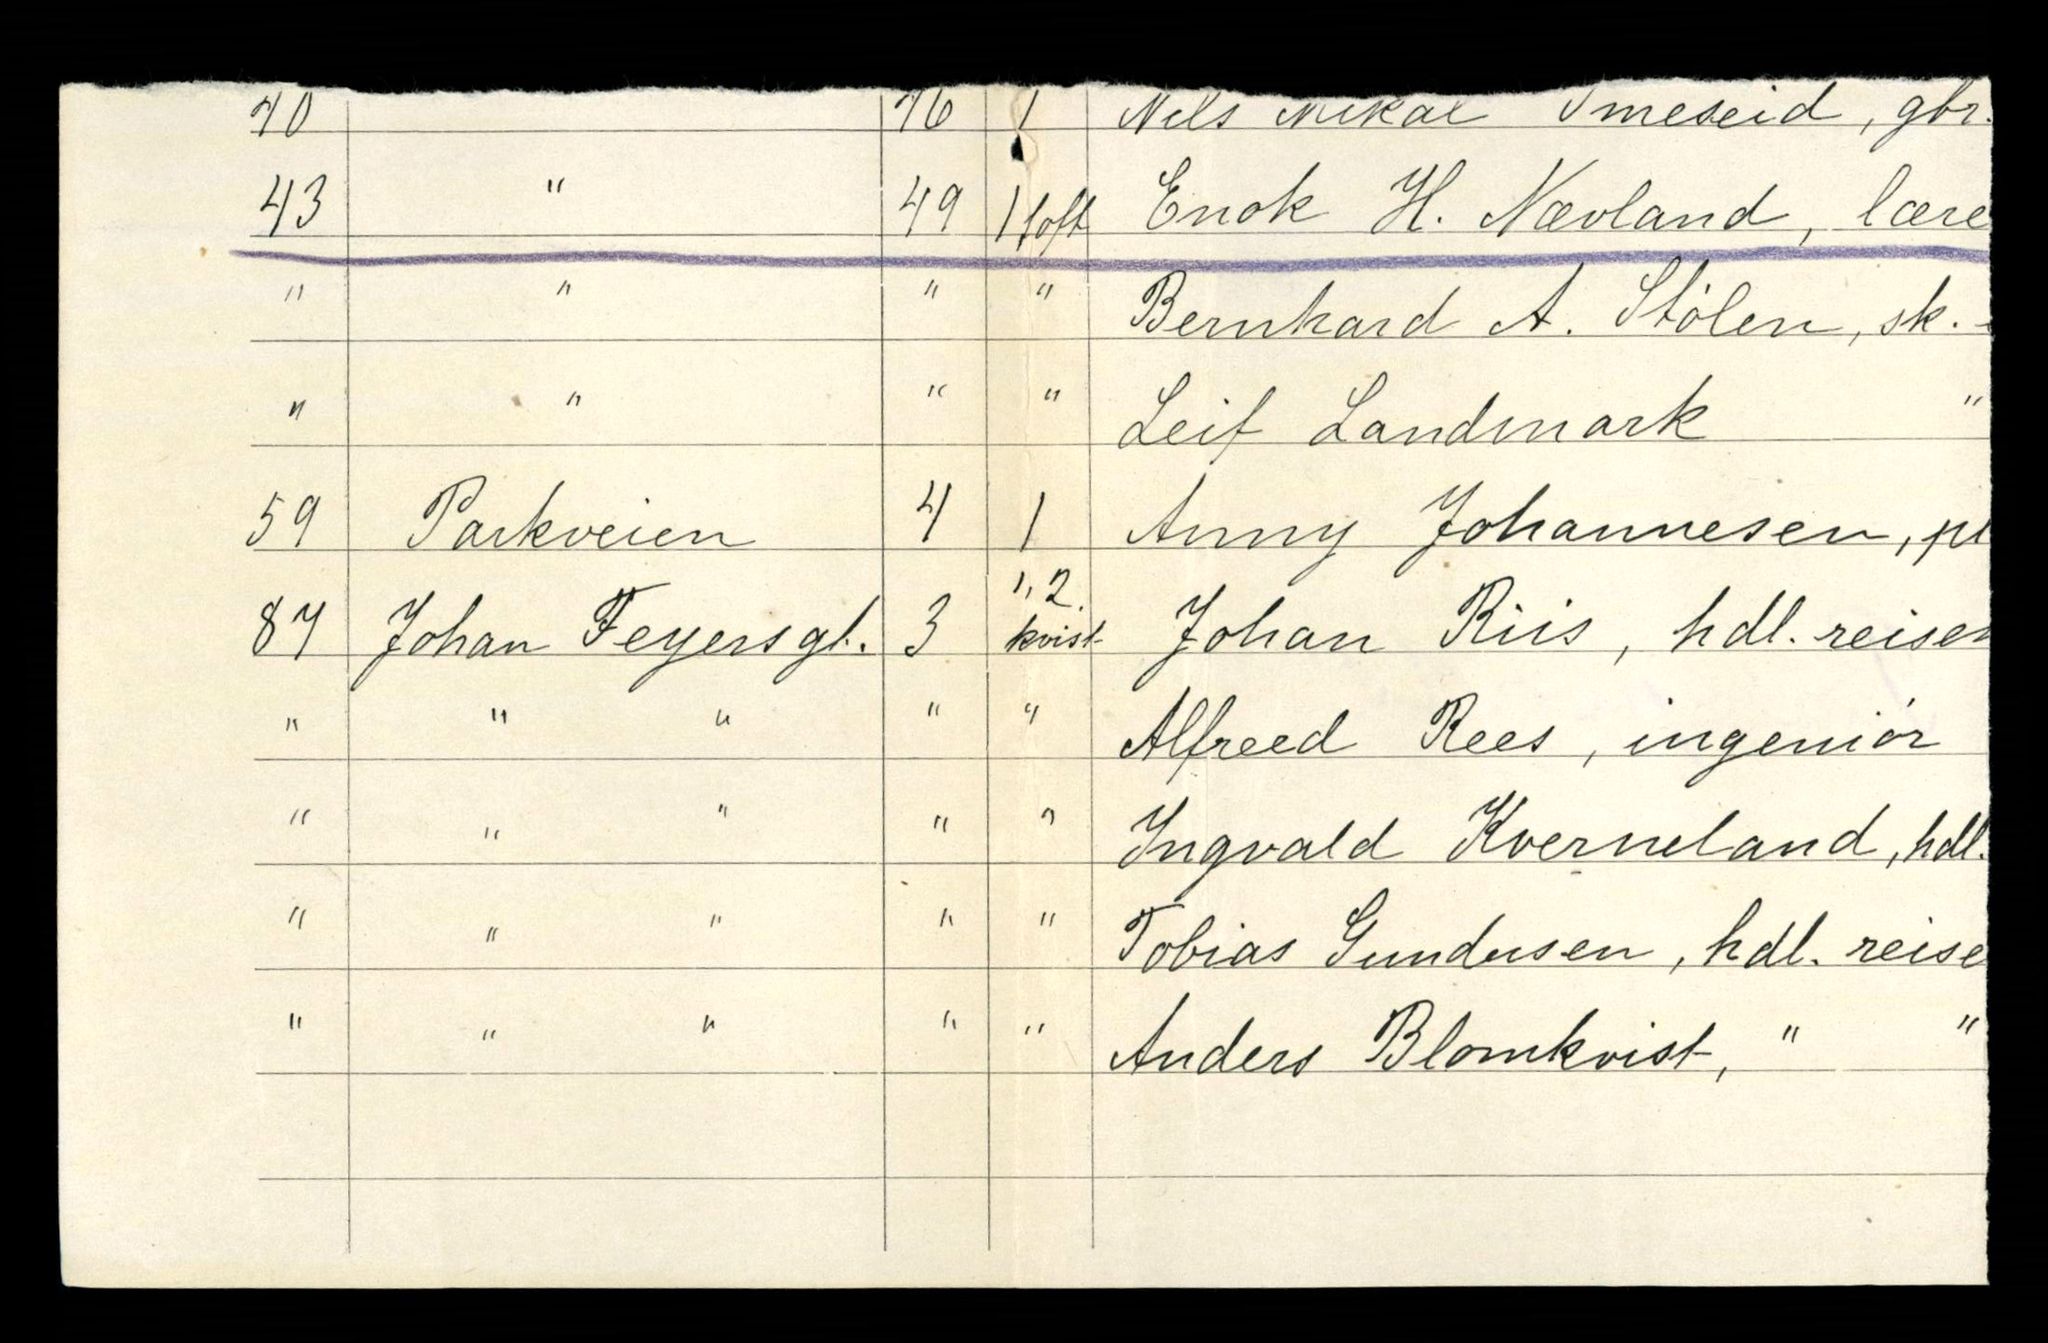 40 46 1 Nils Mikal Imeseid, gbr.
43 " 49 1 loft Enok H. Nævland, lære
" " " " Bernhard A. Stölen, sk. -
" " " " Leif Landmark "
59 Parkveien 4 1 Anny Johannesen, pl
87 Johan Feyersgt. 3 1, 2. kvist Johan Riis, hdl. reisen
" " " " " Alfreed Rees, ingeniör
" " " " " Ingvald Kverneland, hdl.
" " " " " Tobias Gundersen, hdl. reise
" " " " " Anders Blomkvist, " "